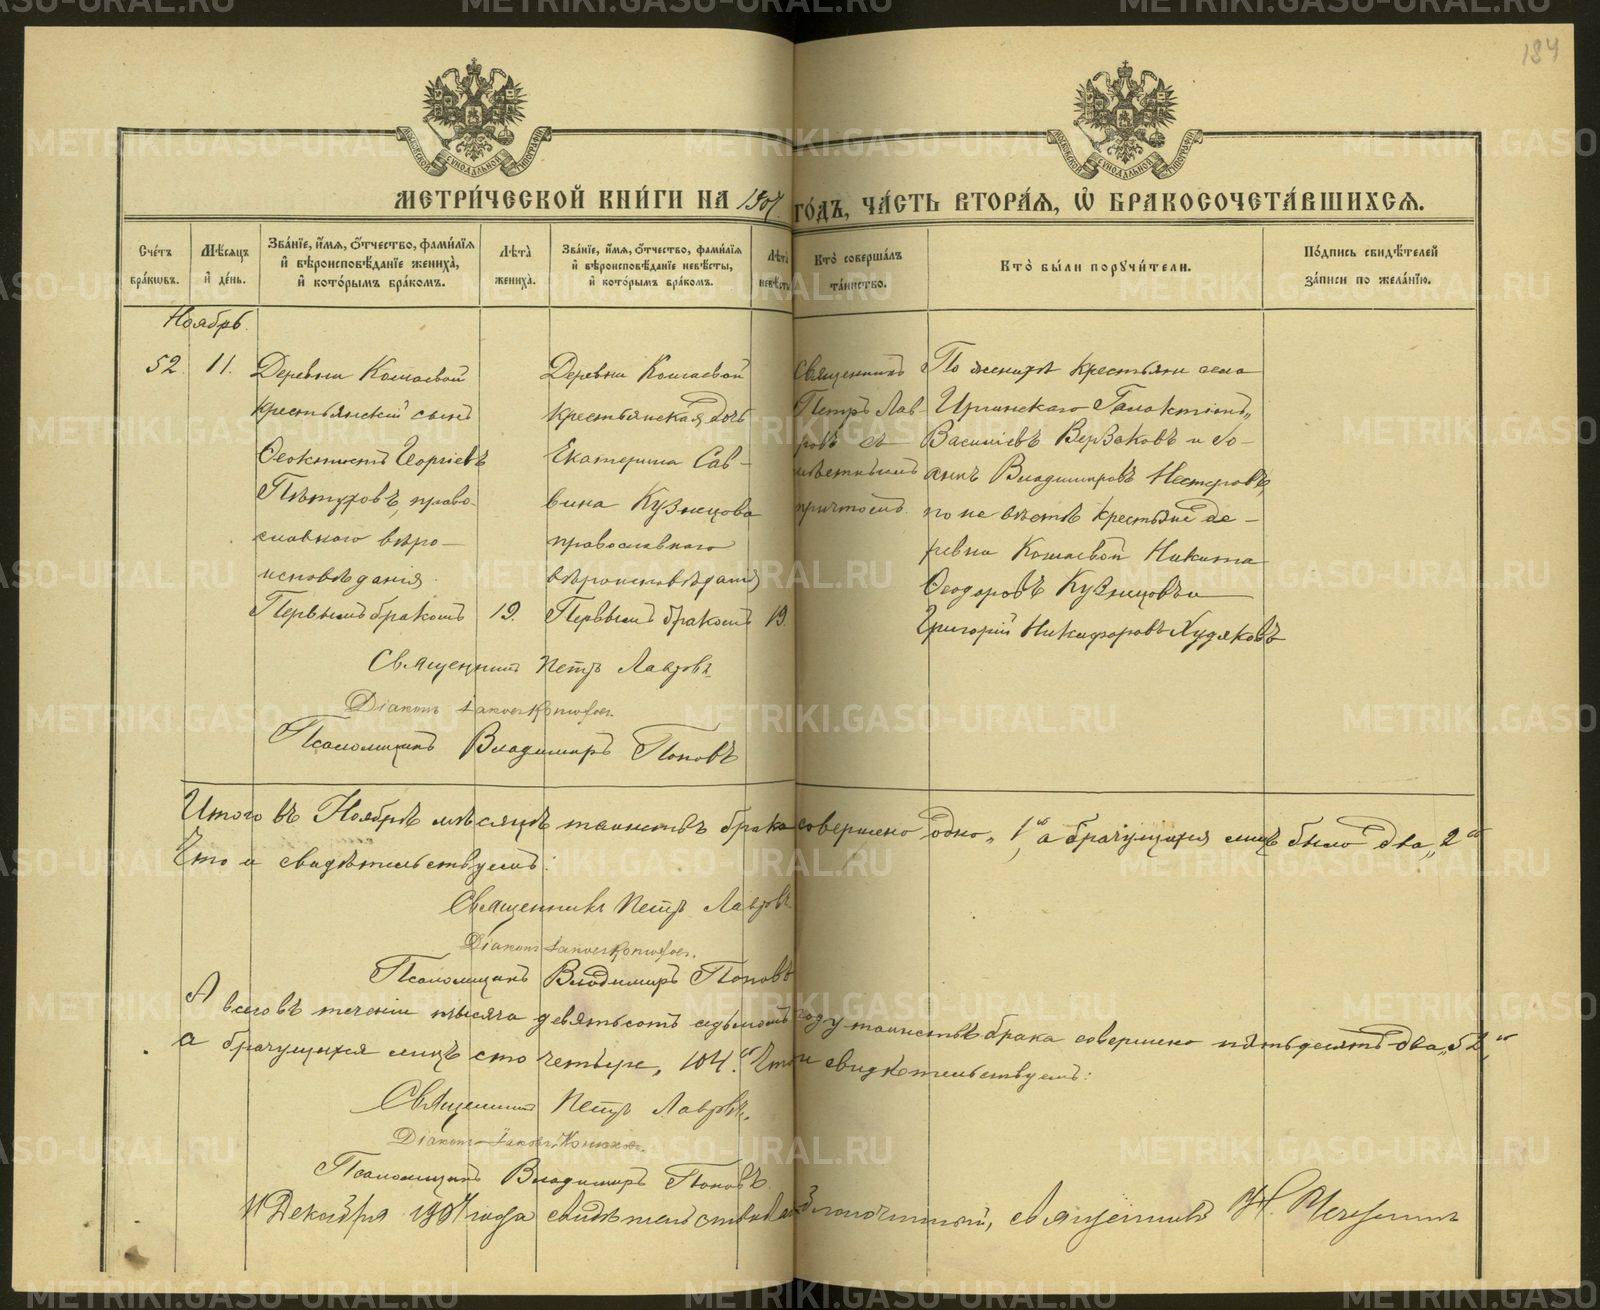 184
МЕТРИ́ЧЕСКОЙ КНИ́ГИ НА 1907 ГО́ДЪ, ЧА́СТЬ ВТОРА́Я, Ѡ҆ БРАКОСОЧЕТА́ВШИХСЯ.
Сче́тъ бра́кѡвъ.
Мѣ́сяцъ и҆ де́нь.
Зва́нїе, и҆́мя, ѻ҆́тчество, фами́лїя и҆ вѣроисповѣ́данїе жениха̀, и҆ кото́рымъ бра́комъ.
Лѣта̀ жениха̀.
Зва́нїе, и҆́мя, ѻ҆́тчество, фами́лїя и҆ вѣроисповѣ́данїе невѣ́сты, и҆ кото́рымъ бра́комъ.
Лѣта̀ невѣ́сты
Кто̀ соверша́лъ та́инство.
Кто̀ бы́ли поручи́тели.
По́дпись свидѣ́телей за́писи по жела́нїю.
Ноябрь.
52. 11.
Деревни Кошаевой
крестьянскій сынъ
Ѳеоктистъ Георгіевъ
Пѣтуховъ, право-
славнаго вѣро-
исповѣданія.
Первымъ бракомъ
19.
Деревни Кошаевой
крестьянская дочь
Екатерина Сав-
вина Кузнецова
православнаго
вѣроисповѣданія
Первымъ бракомъ
19.
Священникъ
Петръ Лав-
ровъ съ
причтомъ.
По женихѣ крестьяне села
Иргинскаго Галактіонъ
Василіевъ Верзаковъ и Іо-
аннъ Владиміровъ Нестеровъ,
по невѣстѣ крестьяне де-
ревни Кошаевой Никита
Ѳеодоровъ Кузнецовъ и
Григорій Никифоровъ Худяковъ
Священникъ Петръ Лавровъ.
Діаконъ
Псаломщикъ Владиміръ Поповъ
Итого въ Ноябрѣ мѣсяцѣ таинствъ брака совершено одно „1“, а брачущихся лицъ было два „2“
Что и свидѣтельствуемъ:
Священникъ Петръ Лавровъ.
Діаконъ
Псаломщикъ Владиміръ Поповъ
А всего въ теченіи тысяча девятьсотъ седьмомъ году таинствъ брака совершено пятьдесятъ два „52“,
а брачущихся лицъ сто четыре, 104.“ Что и свидѣтельствуемъ:
Священникъ Петръ Лавровъ.
Діаконъ
Псаломщикъ Владиміръ Поповъ.
11 Декабря 1907 года свидѣтельствовалъ Благочинный, священникъ
METRIKI.GASO-URAL.RU